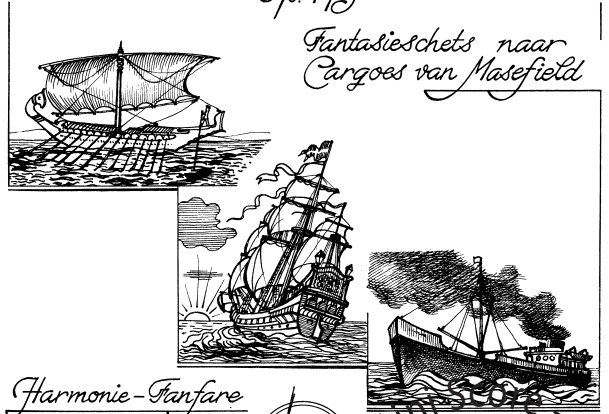 Fantasieschets naar
Cargoes van Masefield
Harmonie-Fanfare